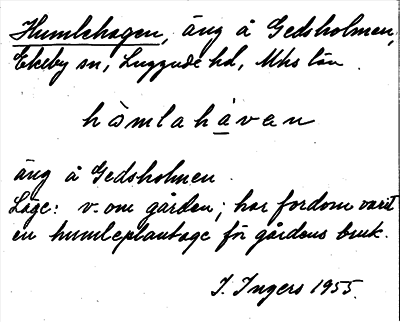 Humlehagen, äng å Gedsholmen,
Ekeby sn, Luggude hd, Mhs län.
hòmlahávan
äng å Gedsholmen.
Läge: v. om gården; har fordom varit
en humleplantage för gårdens bruk.
I. Ingers 1955.